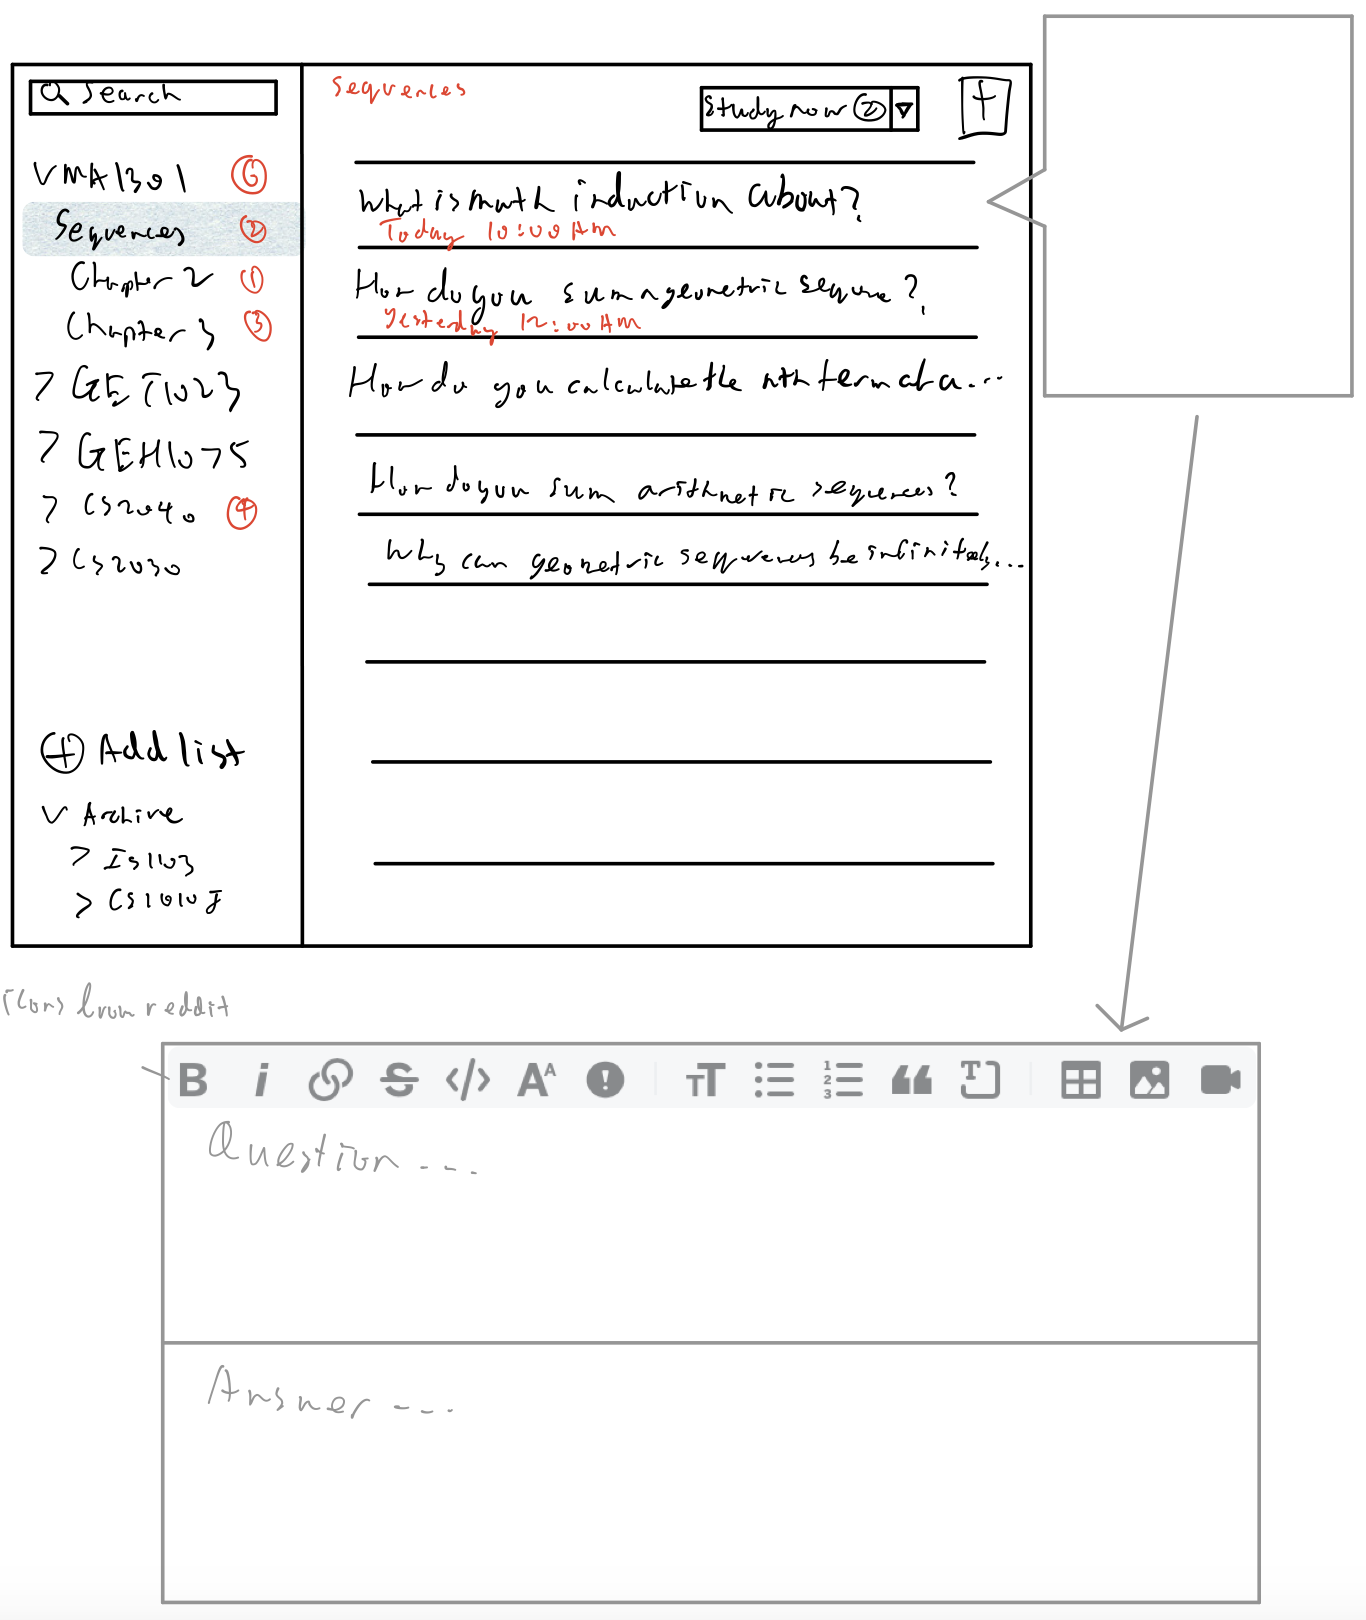 Search
MA1301 6
Sequences 2
Chapter 2 1
Chapter 3 3
GET1023
GEH1075
CS2040 4
CS2030
Add list
Archive
IS1103
CS1010J
Sequences
Study now 2
What is math induction about?
Today 10:00 AM
How do you sum a geometric sequence?
Yesterday 12:00 AM
How do you calculate the nth term of a...
How do you sum arithmetic sequences?
Why can geometric sequences be infinitely...
icons from reddit
B i S </> AA ! TT 1 2 3 T
Question ...
Answer ...